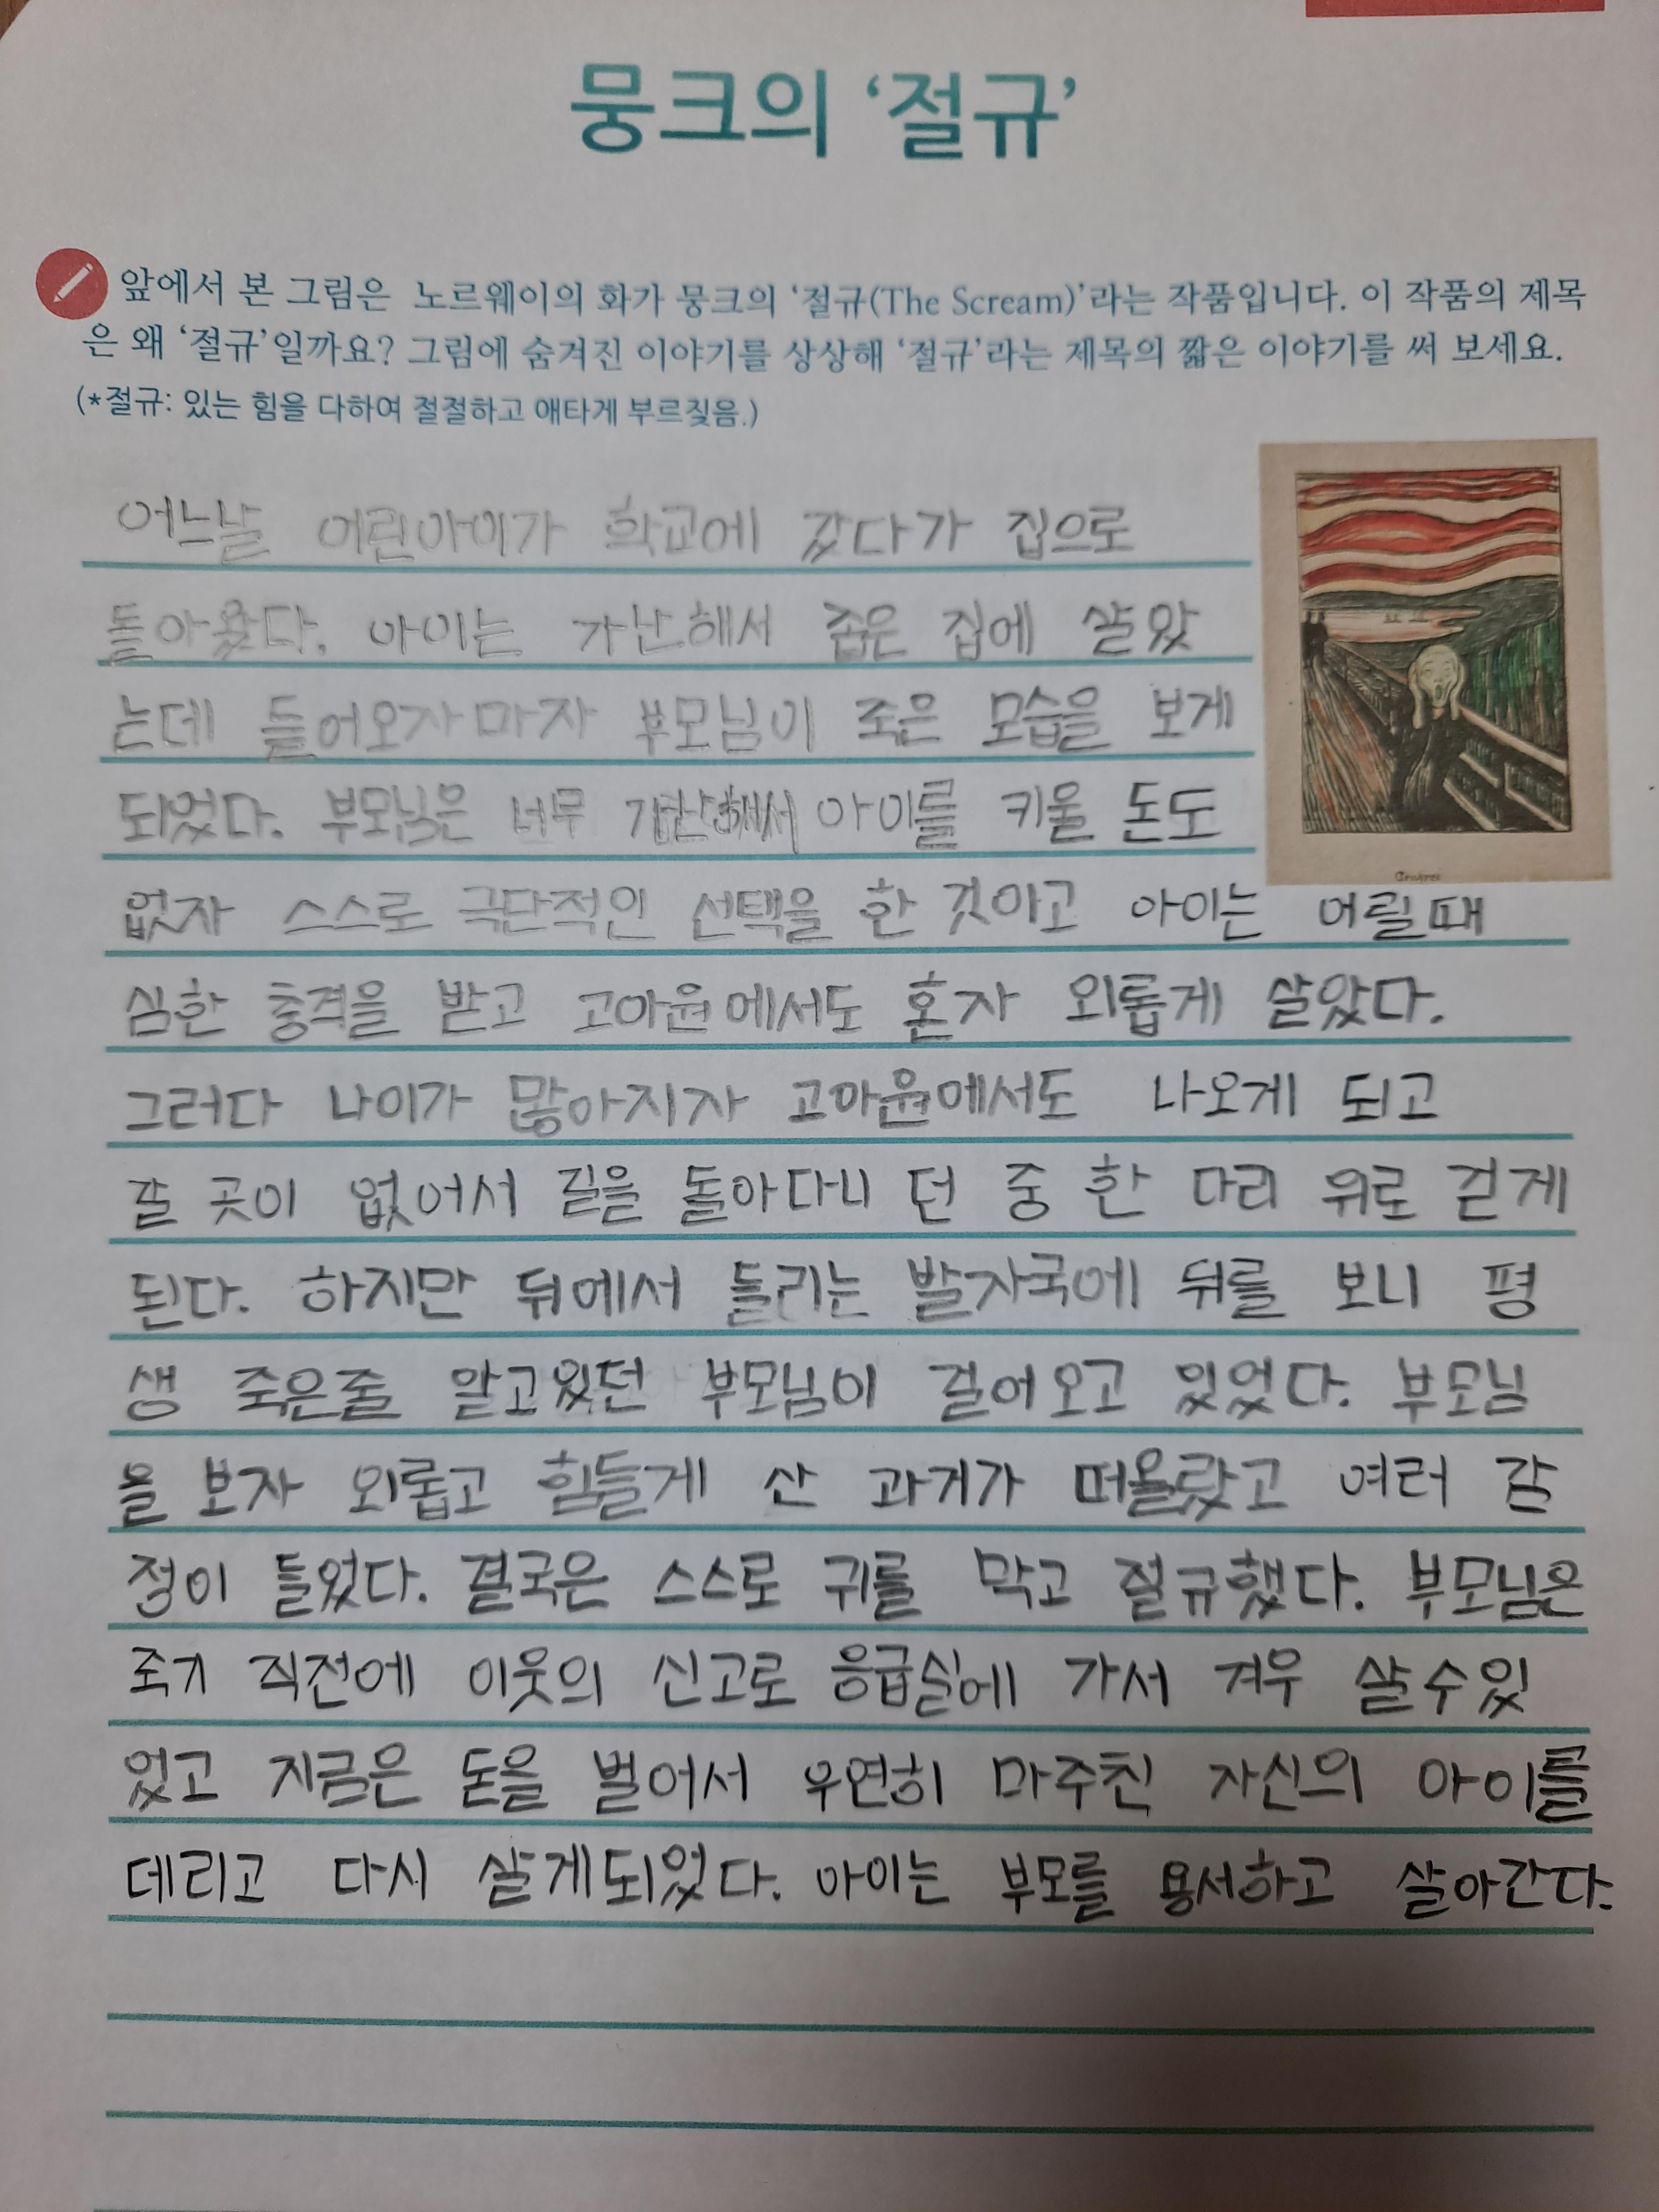 뭉크의 ‘절규’
앞에서 본 그림은 노르웨이의 화가 뭉크의 ‘절규(The Scream)’라는 작품입니다. 이 작품의 제목
은 왜 ‘절규’일까요? 그림에 숨겨진 이야기를 상상해 ‘절규’라는 제목의 짧은 이야기를 써 보세요.
(*절규: 있는 힘을 다하여 절절하고 애타게 부르짖음.)
어느날 어린아이가 학교에 갔다가 집으로
돌아왔다. 아이는 가난해서 좁은 집에 살았
는데 들어오자마자 부모님이 죽은 모습을 보게
되었다. 부모님은 너무 가난해서 아이를 키울 돈도
없자 스스로 극단적인 선택을 한 것이고 아이는 어릴때
심한 충격을 받고 고아원에서도 혼자 외롭게 살았다.
그러다 나이가 많아지자 고아원에서도 나오게 되고
갈 곳이 없어서 길을 돌아다니던 중 한 다리 위로 걷게
된다. 하지만 뒤에서 들리는 발자국에 뒤를 보니 평
생 죽은줄 알고있던 부모님이 걸어오고 있었다. 부모님
을 보자 외롭고 힘들게 산 과거가 떠올랐고 여러 감
정이 들었다. 결국은 스스로 귀를 막고 절규했다. 부모님은
죽기 직전에 이웃의 신고로 응급실에 가서 겨우 살수있
었고 지금은 돈을 벌어서 우연히 마주친 자신의 아이를
데리고 다시 살게되었다. 아이는 부모를 용서하고 살아간다.